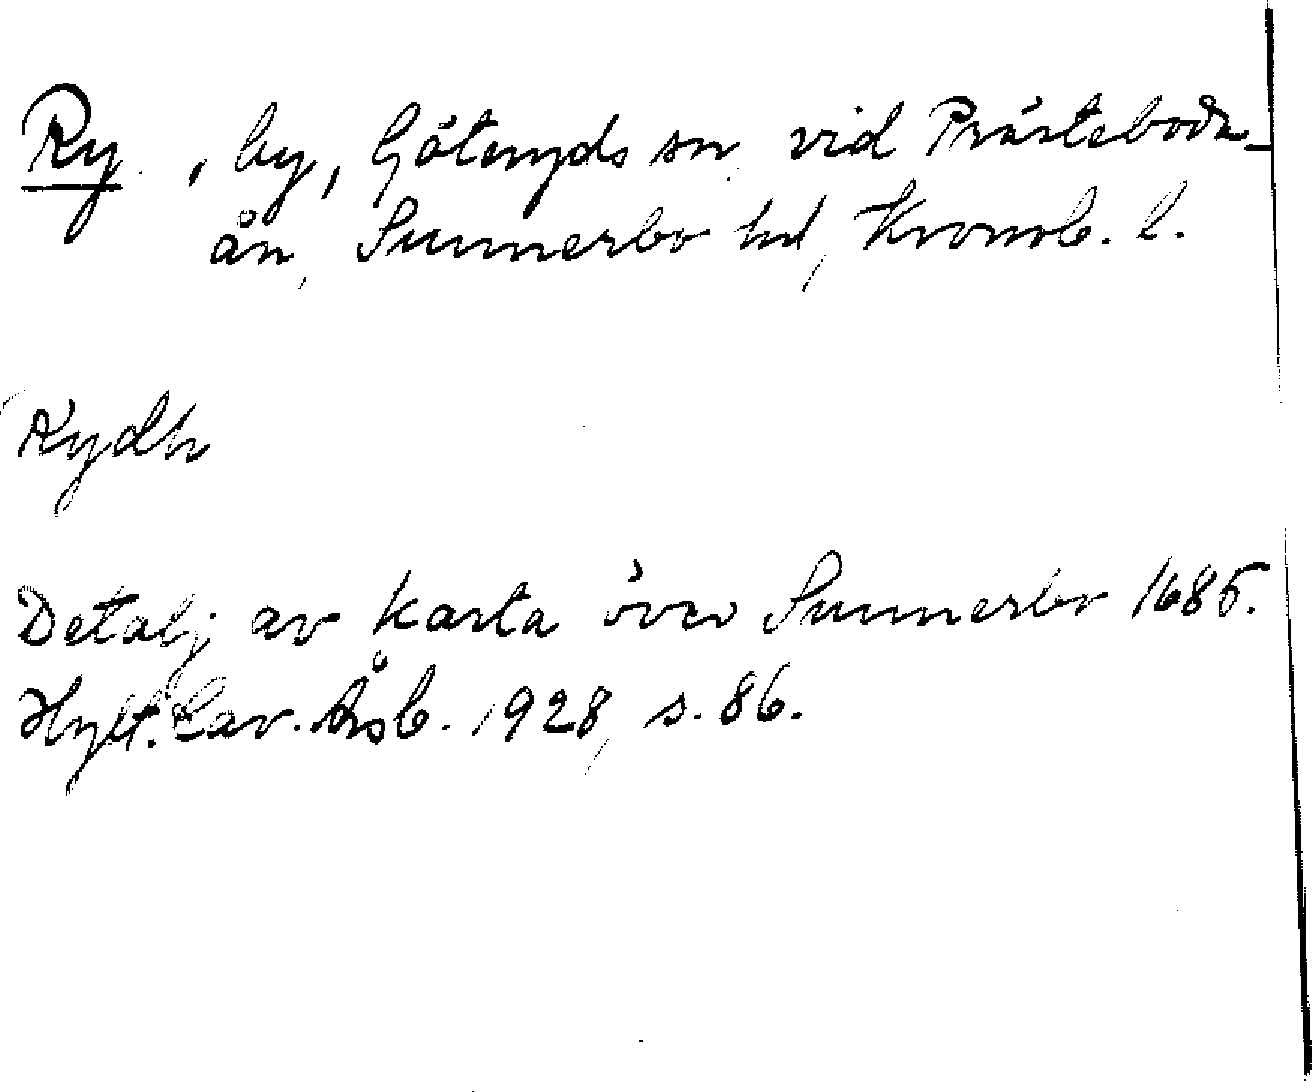 Ry, by, Göteryds sn. vid Prästeboda-
ån, Sunnerbo hd, Kronob. l.
Rydh
Detalj av karta över Sunnerbo 1685.
Hylt. Cav. Åsb. 1928, s. 86.